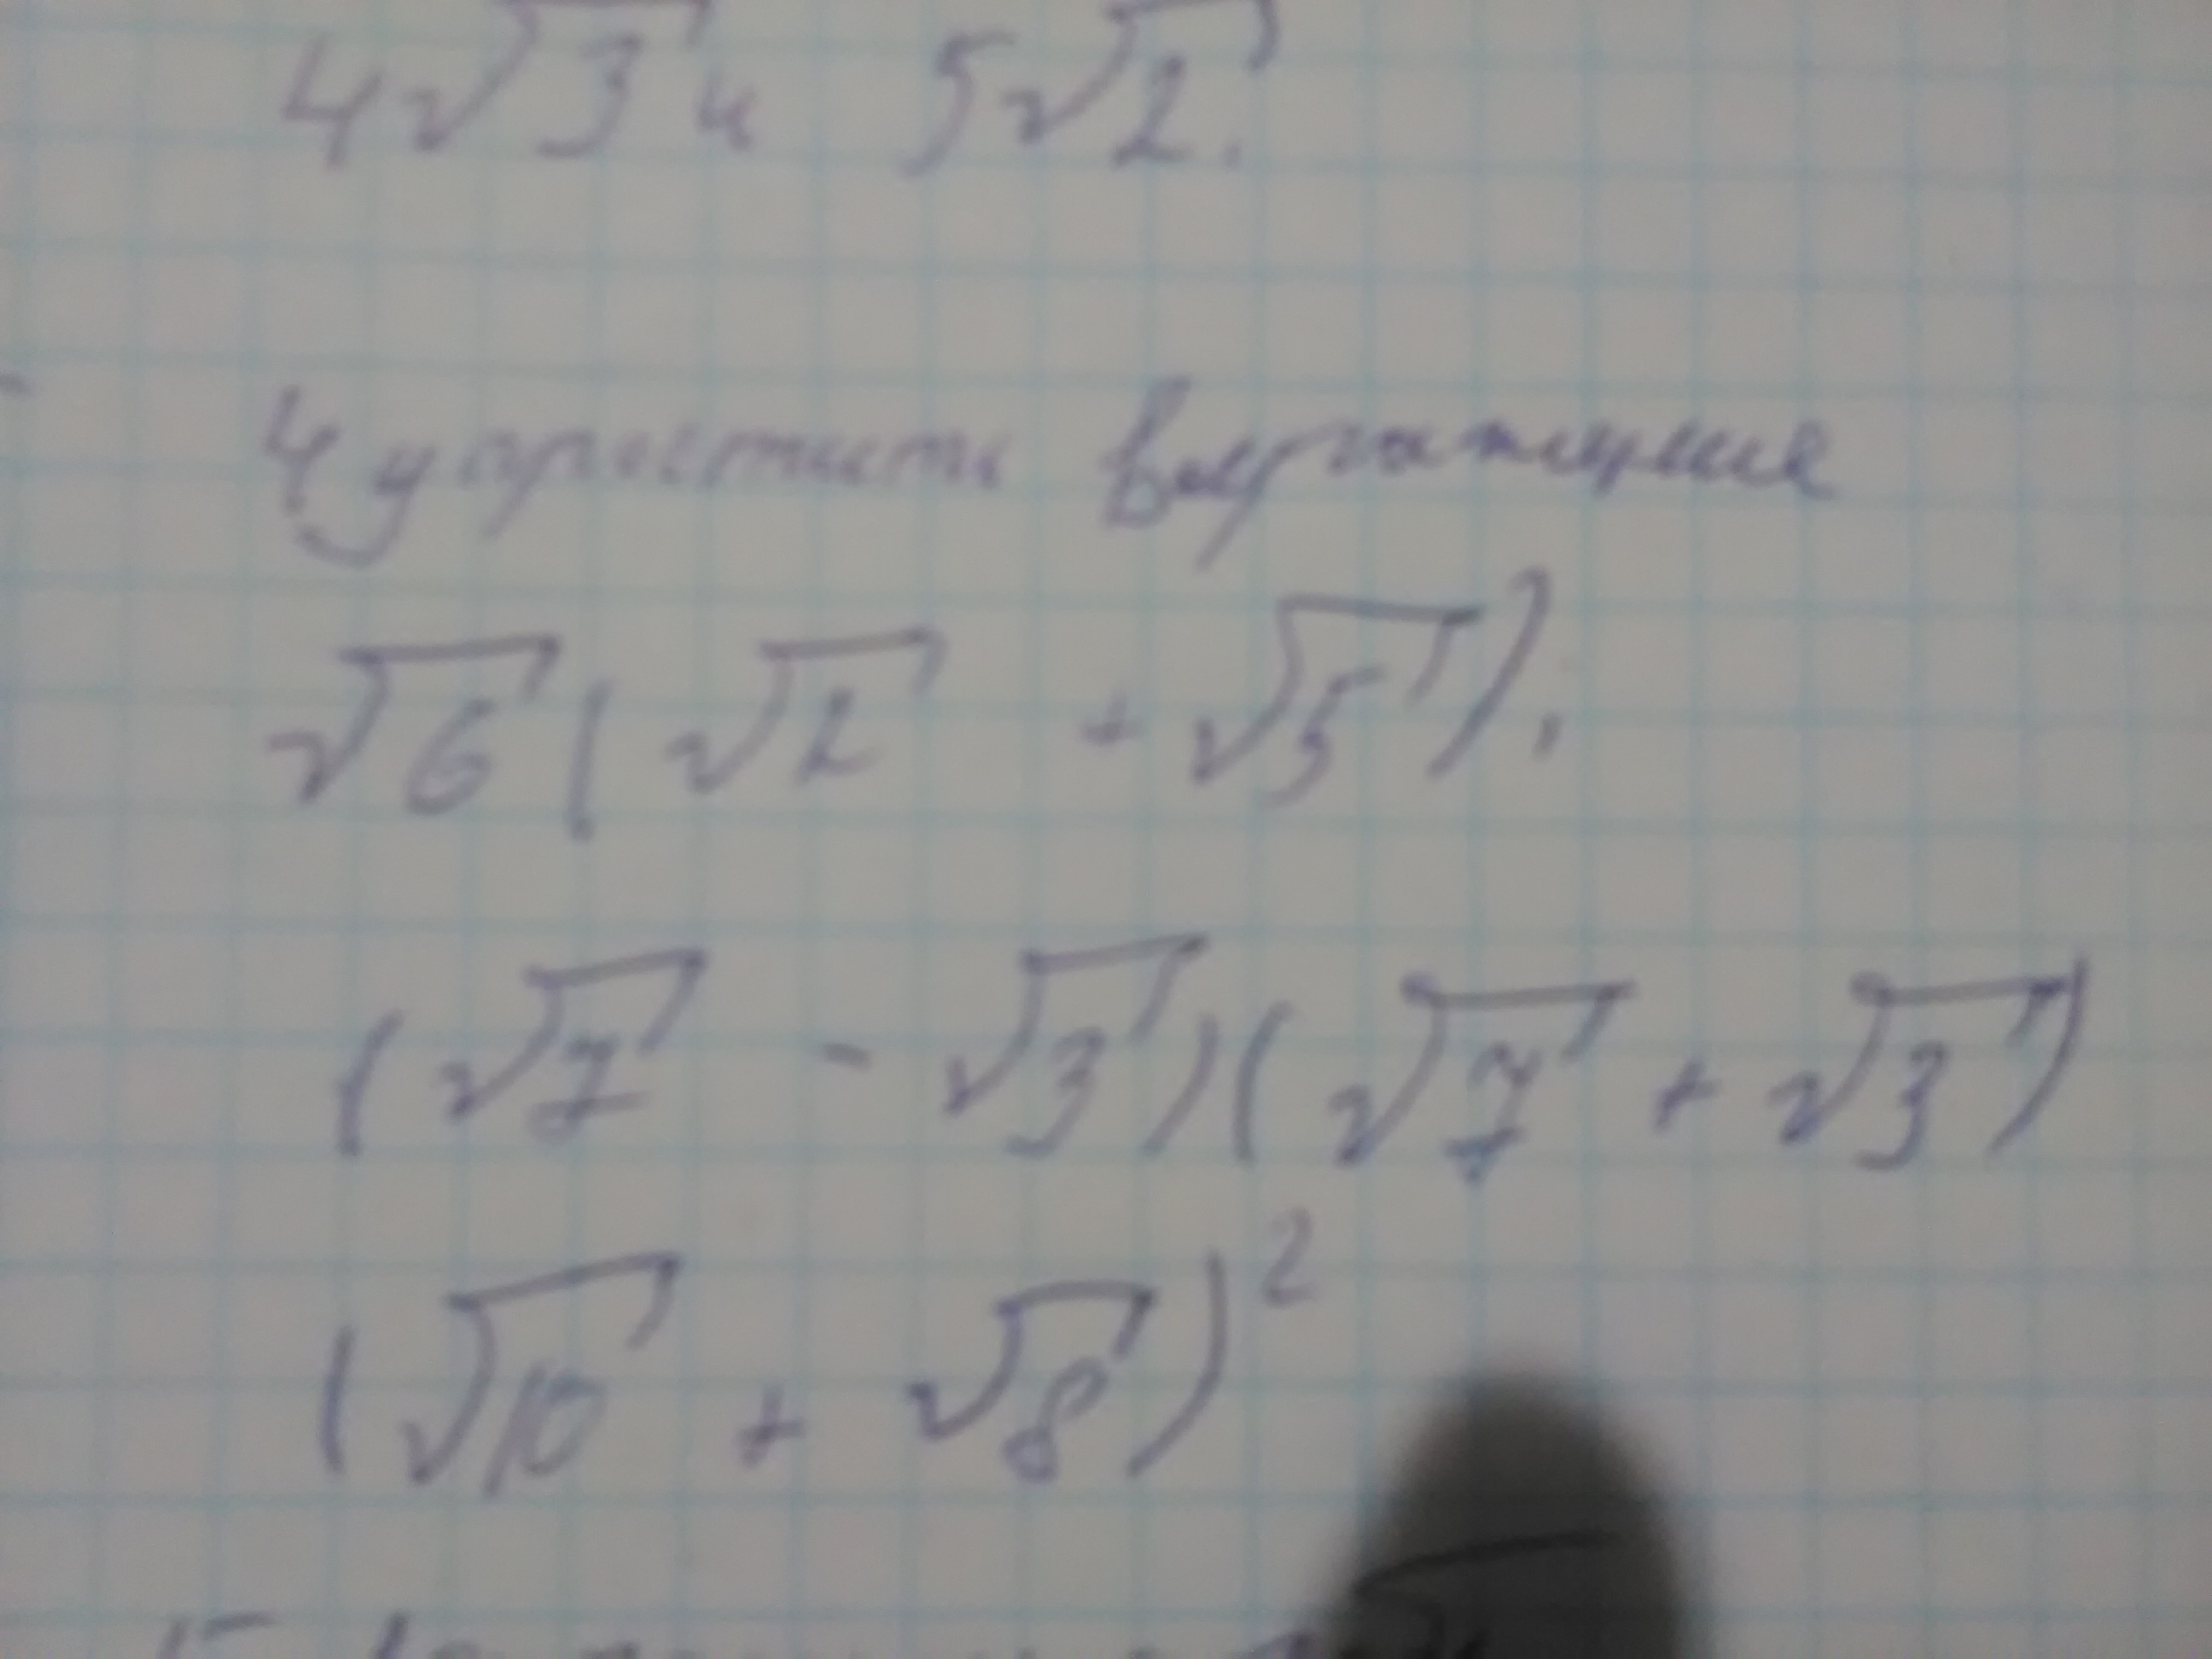 4√3 и 5√2.
4 упростить выражение
√6(√2 + √5).
(√7 - √3)(√7 + √3)
(√10 + √8)²